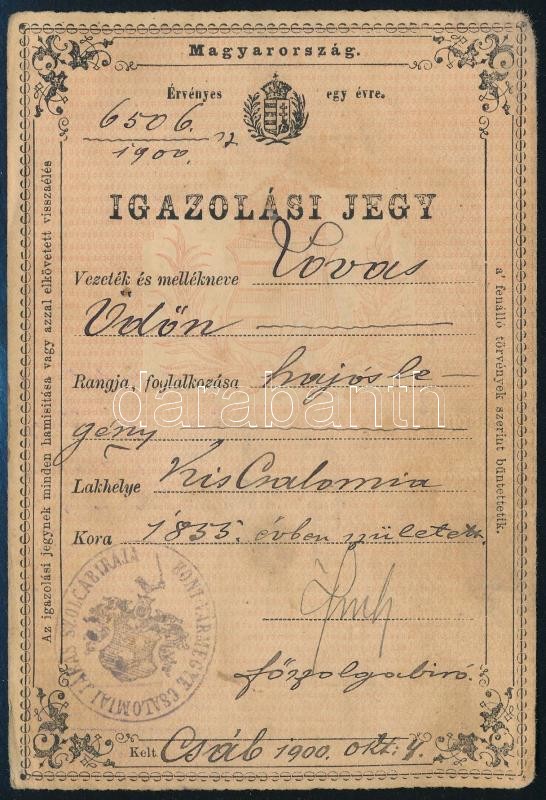 Magyarország.
Érvényes egy évre.
6506.
1900.
IGAZOLÁSI JEGY
Vezeték és mellékneve Lovas
Ödön
Rangja, foglalkozása hajósle-
gény
Lakhelye KisCsalomia
Kora 1855. évben született.
főszolgabiró.
Kelt Csáb 1900. okt: 4.
Az igazolási jegynek minden hamisitása vagy azzal elkövetett visszaélés
a' fenálló törvények szerint büntettetik.
HONTVÁRMEGYE CSALOMIAI JÁRÁS SZOLGABIRÁJA
darabanth